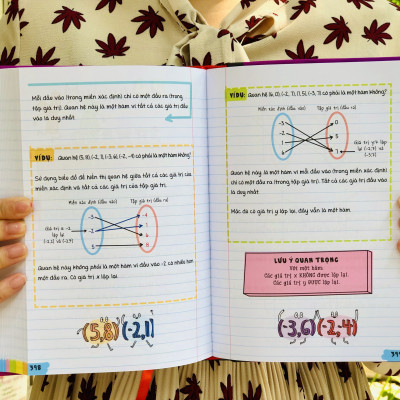 Mỗi đầu vào (trong miền xác định) chỉ có một đầu ra (trong
tập giá trị). Quan hệ này là một hàm vì tất cả các giá trị đầu
vào là duy nhất.
VÍ DỤ:
Sử dụng biểu đồ để hiển thị quan hệ giữa tất cả các giá trị của
miền xác định và tất cả các giá trị của tập giá trị.
Miền xác định (đầu vào)
Tập giá trị (đầu ra)
Quan hệ này không phải là một hàm vì đầu vào -2 có nhiều hơn
một đầu ra. Có giá trị x lặp lại.
(5,8) (-2,1)
398
VÍ DỤ:
Miền xác định (đầu vào)
Tập giá trị (đầu ra)
Giá trị y=7 lặp
Quan hệ này là một hàm vì mỗi đầu vào (trong miền xác định)
chỉ có một đầu ra (trong tập giá trị). Tất cả các giá trị đầu vào
là duy nhất.
Mặc dù có giá trị y lặp lại, đây vẫn là một hàm.
LƯU Ý QUAN TRỌNG
Với một hàm:
Các giá trị x KHÔNG được lặp lại.
Các giá trị y ĐƯỢC lặp lại.
(-3,6) (-2,-4)